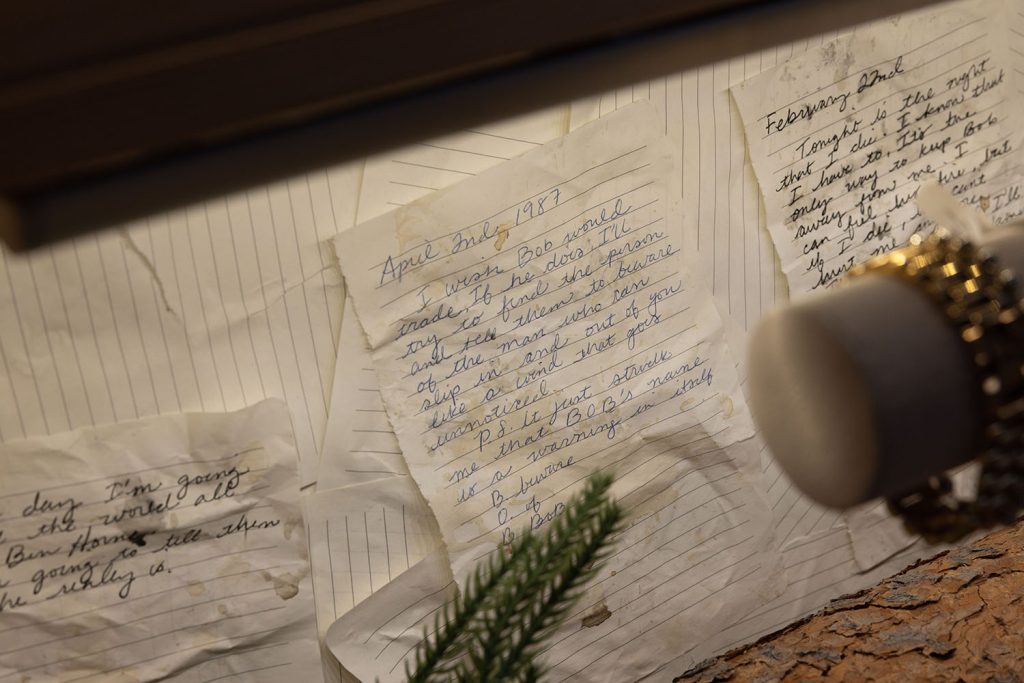 day I'm going
the world all
Ben Horne
going to tell them
he really is.
April 2nd, 1987
I wish Bob would
trade. If he does, I'll
try to find the person
and tell them to beware
of the man who can
slip in and out of you
like a wind that goes
unnoticed
P.S. It just struck
me that B.O.B's name
is a warning in itself
B beware
O of
B BOB
February 22nd
Tonight is the night
that I die. I know that
I have to, It's the
only way to keep Bob
away from me. I
can feel his fire, but
if I die, can't
hurt me, I'll